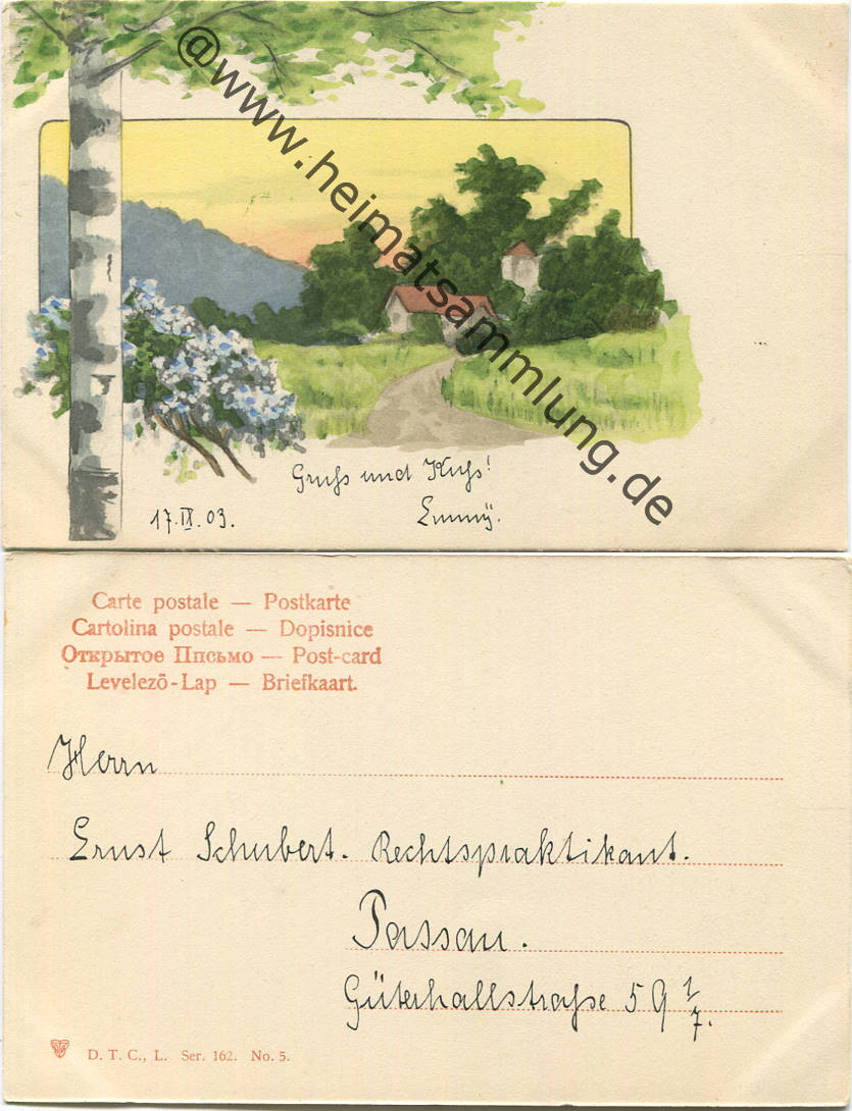 @www.heimatsammlung.de
Gruß und Kuß!
17.IX.03.
Emmy.
Carte postale — Postkarte
Cartolina postale — Dopisnice
Открытое Письмо — Post-card
Levelező-Lap — Briefkaart.
Herrn
Ernst Schubert. Rechtspraktikant.
Passau.
Güterhallstraße 59 1/7.
D. T. C., L. Ser. 162. No. 5.